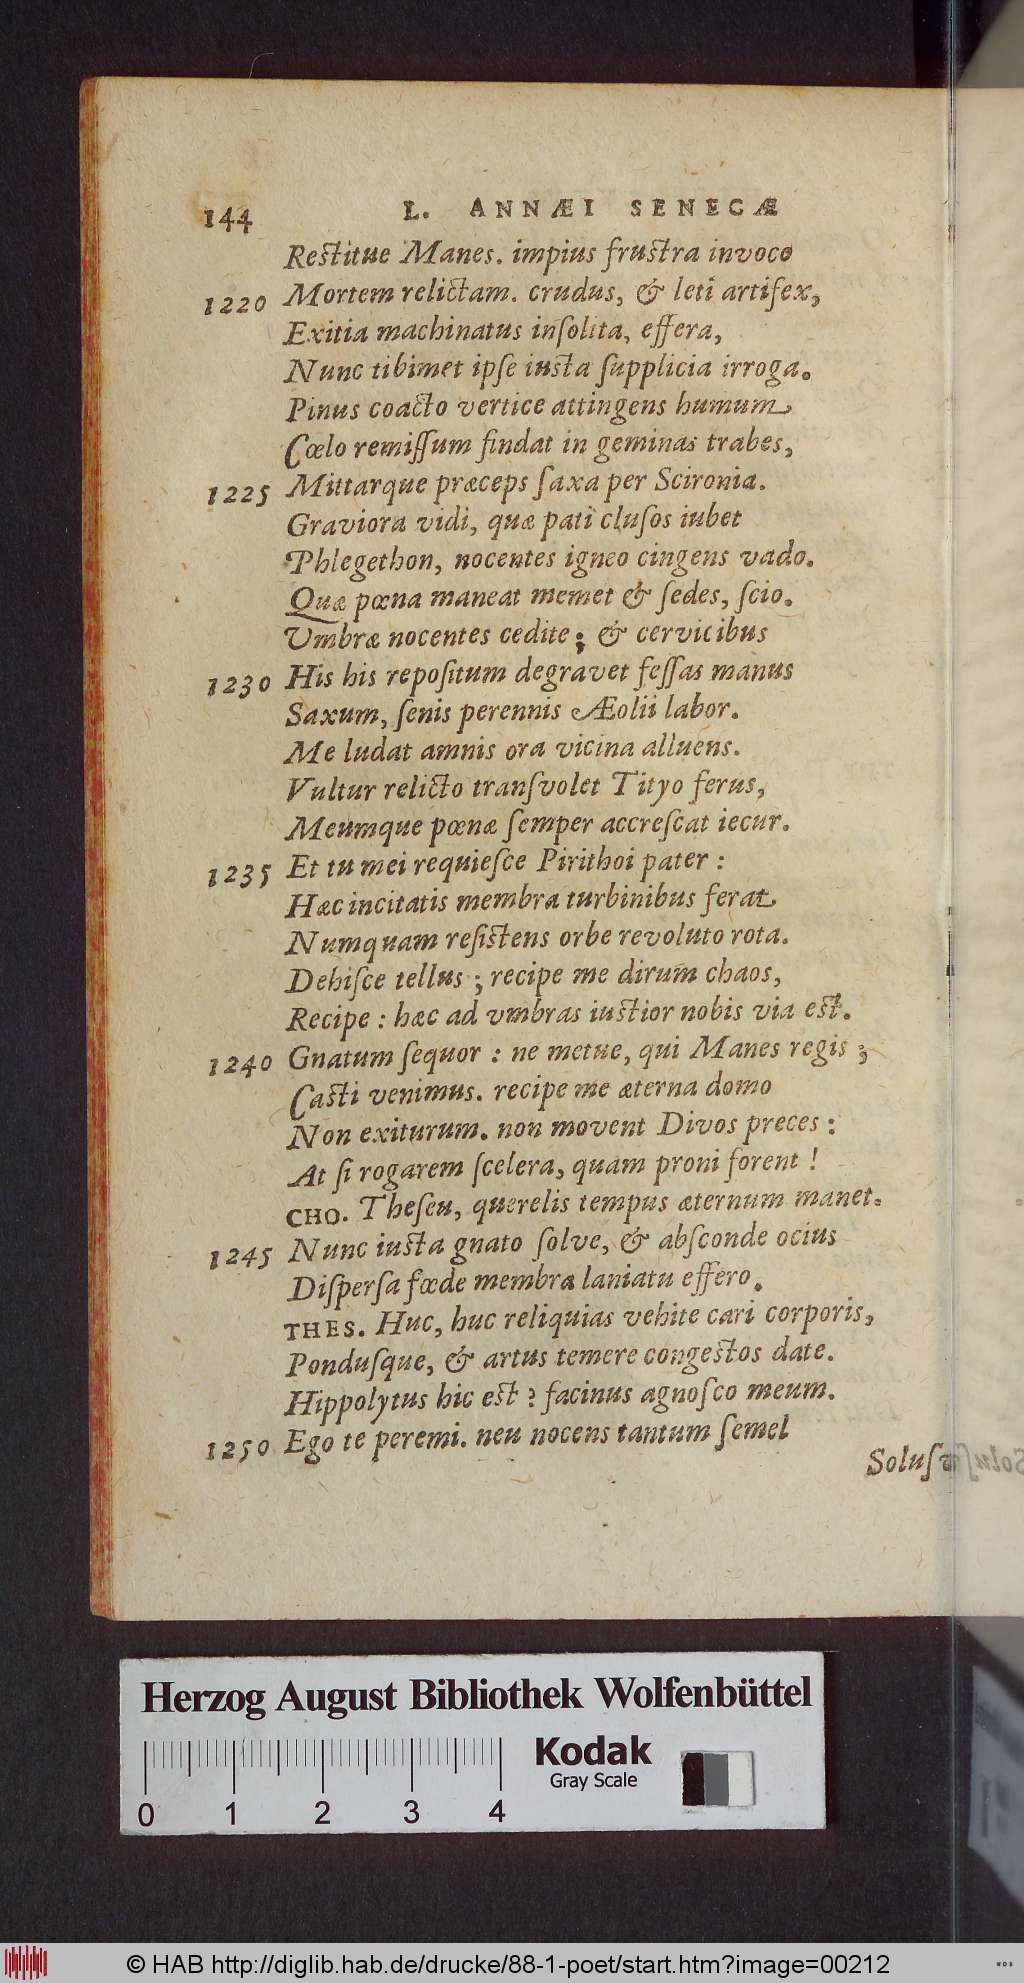 144 L. ANNÆI SENECÆ
Reſtitue Manes. impius fruſtra invoco
1220 Mortem relictam. crudus, & leti artifex,
Exitia machinatus inſolita, effera,
Nunc tibimet ipſe iuſta ſupplicia irroga.
Pinus coacto vertice attingens humum
Cœlo remiſſum findat in geminas trabes,
1225 Mittarque præceps ſaxa per Scironia.
Graviora vidi, quæ pati cluſos iubet
Phlegethon, nocentes igneo cingens vado.
Quæ pœna maneat memet & ſedes, ſcio.
Vmbræ nocentes cedite; & cervicibus
1230 His his repoſitum degravet feſſas manus
Saxum, ſenis perennis Æolii labor.
Me ludat amnis ora vicina alluens.
Vultur relicto tranſvolet Tityo ferus,
Meumque pœnæ ſemper accreſcat iecur.
1235 Et tu mei requieſce Pirithoi pater:
Hæc incitatis membra turbinibus ferat
Numquam reſiſtens orbe revoluto rota.
Dehiſce tellus; recipe me dirum chaos,
Recipe: hæc ad vmbras iuſtior nobis via eſt.
1240 Gnatum ſequor: ne metue, qui Manes regis;
Caſti venimus. recipe me æterna domo
Non exiturum. non movent Divos preces:
At ſi rogarem ſcelera, quam proni forent!
CHO. Theſeu, querelis tempus æternum manet.
1245 Nunc iuſta gnato ſolve, & abſconde ocius
Diſperſa fœde membra laniatu effero.
THES. Huc, huc reliquias vehite cari corporis,
Ponduſque, & artus temere congeſtos date.
Hippolytus hic eſt? facinus agnoſco meum.
1250 Ego te peremi. neu nocens tantum ſemel
Soluſv
Herzog August Bibliothek Wolfenbüttel
Kodak
Gray Scale
0 1 2 3 4
© HAB http://diglib.hab.de/drucke/88-1-poet/start.htm?image=00212